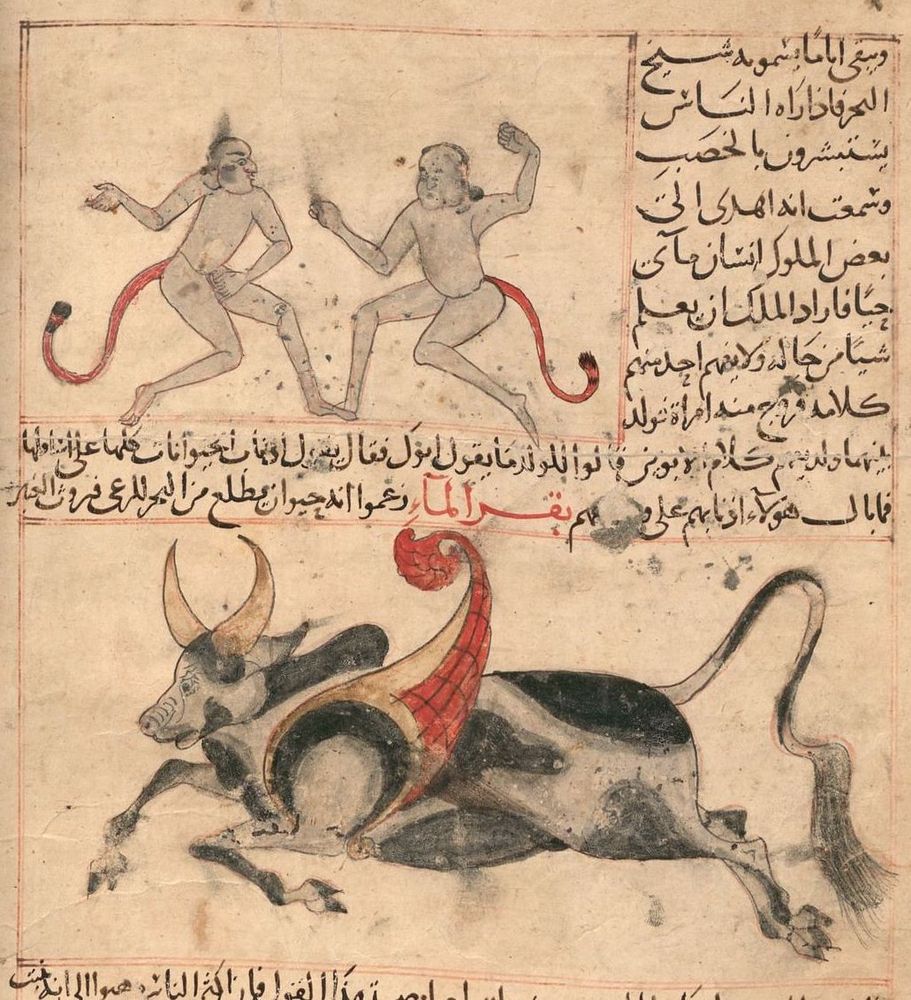 ويبقى اياما يسمونه شيخ
البحر فاذا راه الناس
يستبشرون بالخصب
وسمعت انه اهدى الى
بعض الملوك انسان مآئي
حيا فاراد الملك ان يعلم
شيا من حاله ولا يفهم احد منهم
كلامه فزوج منه امراة فولد
بينهما ولد يفهم كلام الابوين قالوا للولد ما يقول ابوك فقال يقول اذناب الحيوانات كلها على اسافلها
فما بال هولآء اذنابهم على بقر المآء زعموا انه حيوان يطلع من البحر للرعى فروث العنبر
هذا القول فان اكثر الناس